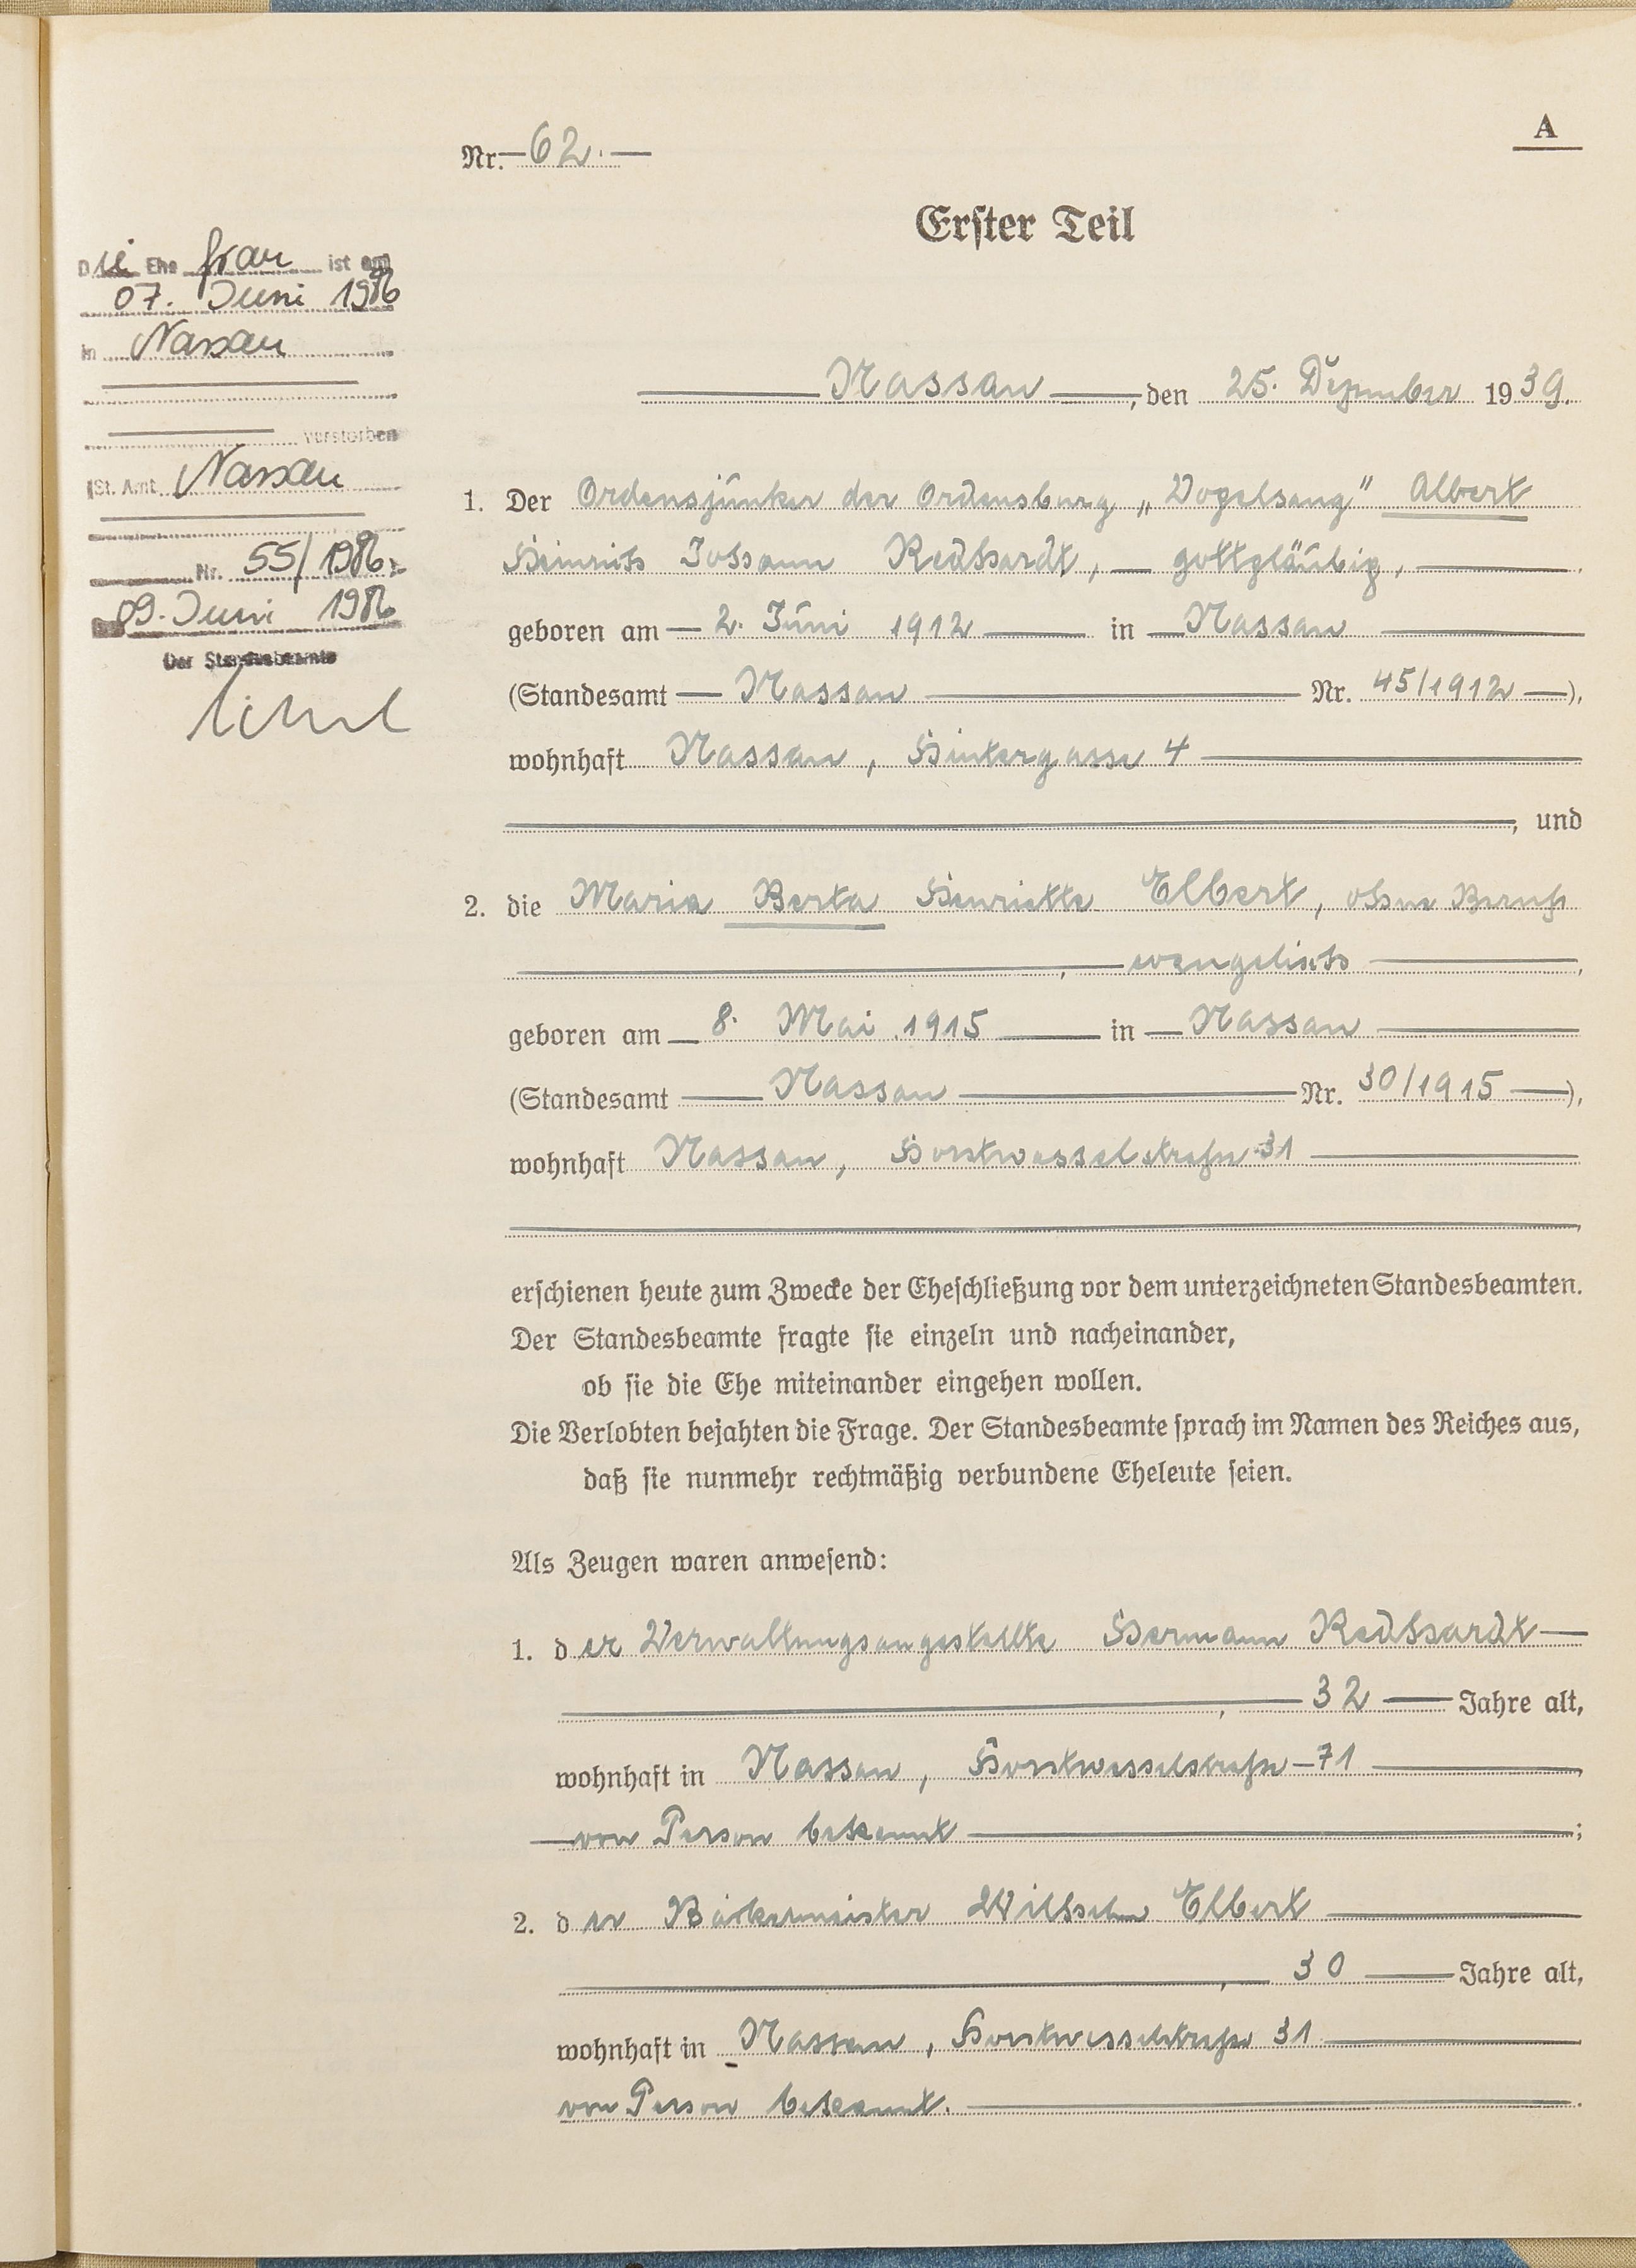 A
Nr. 62.
Erster Teil
Die Ehe frau ist am
07. Juni 1986
in Nassau
verstorben
St. Amt Nassau
Nr. 55/1986
09. Juni 1986
Der Standesbeamte
Nassau, den 25. Dezember 1939.
1. Der Ordensjunker der Ordensburg „Vogelsang" Albert
Heinrich Johann Redhardt, gottgläubig,
geboren am 2. Juni 1912 in Nassau
(Standesamt Nassau Nr. 45/1912),
wohnhaft Nassau, Hintergasse 4
, und
2. die Maria Berta Henriette Elbert, ohne Beruf
, evangelisch,
geboren am 8. Mai 1915 in Nassau
(Standesamt Nassau Nr. 30/1915),
wohnhaft Nassau, Horstwesselstraße 31
,
erschienen heute zum Zwecke der Eheschließung vor dem unterzeichneten Standesbeamten.
Der Standesbeamte fragte sie einzeln und nacheinander,
ob sie die Ehe miteinander eingehen wollen.
Die Verlobten bejahten die Frage. Der Standesbeamte sprach im Namen des Reiches aus,
daß sie nunmehr rechtmäßig verbundene Eheleute seien.
Als Zeugen waren anwesend:
1. der Verwaltungsangestellte Hermann Redhardt
, 32 Jahre alt,
wohnhaft in Nassau, Horstwesselstraße 71
von Person bekannt ;
2. der Bäckermeister Wilhelm Elbert
, 30 Jahre alt,
wohnhaft in Nassau, Horstwesselstraße 31
von Person bekannt.